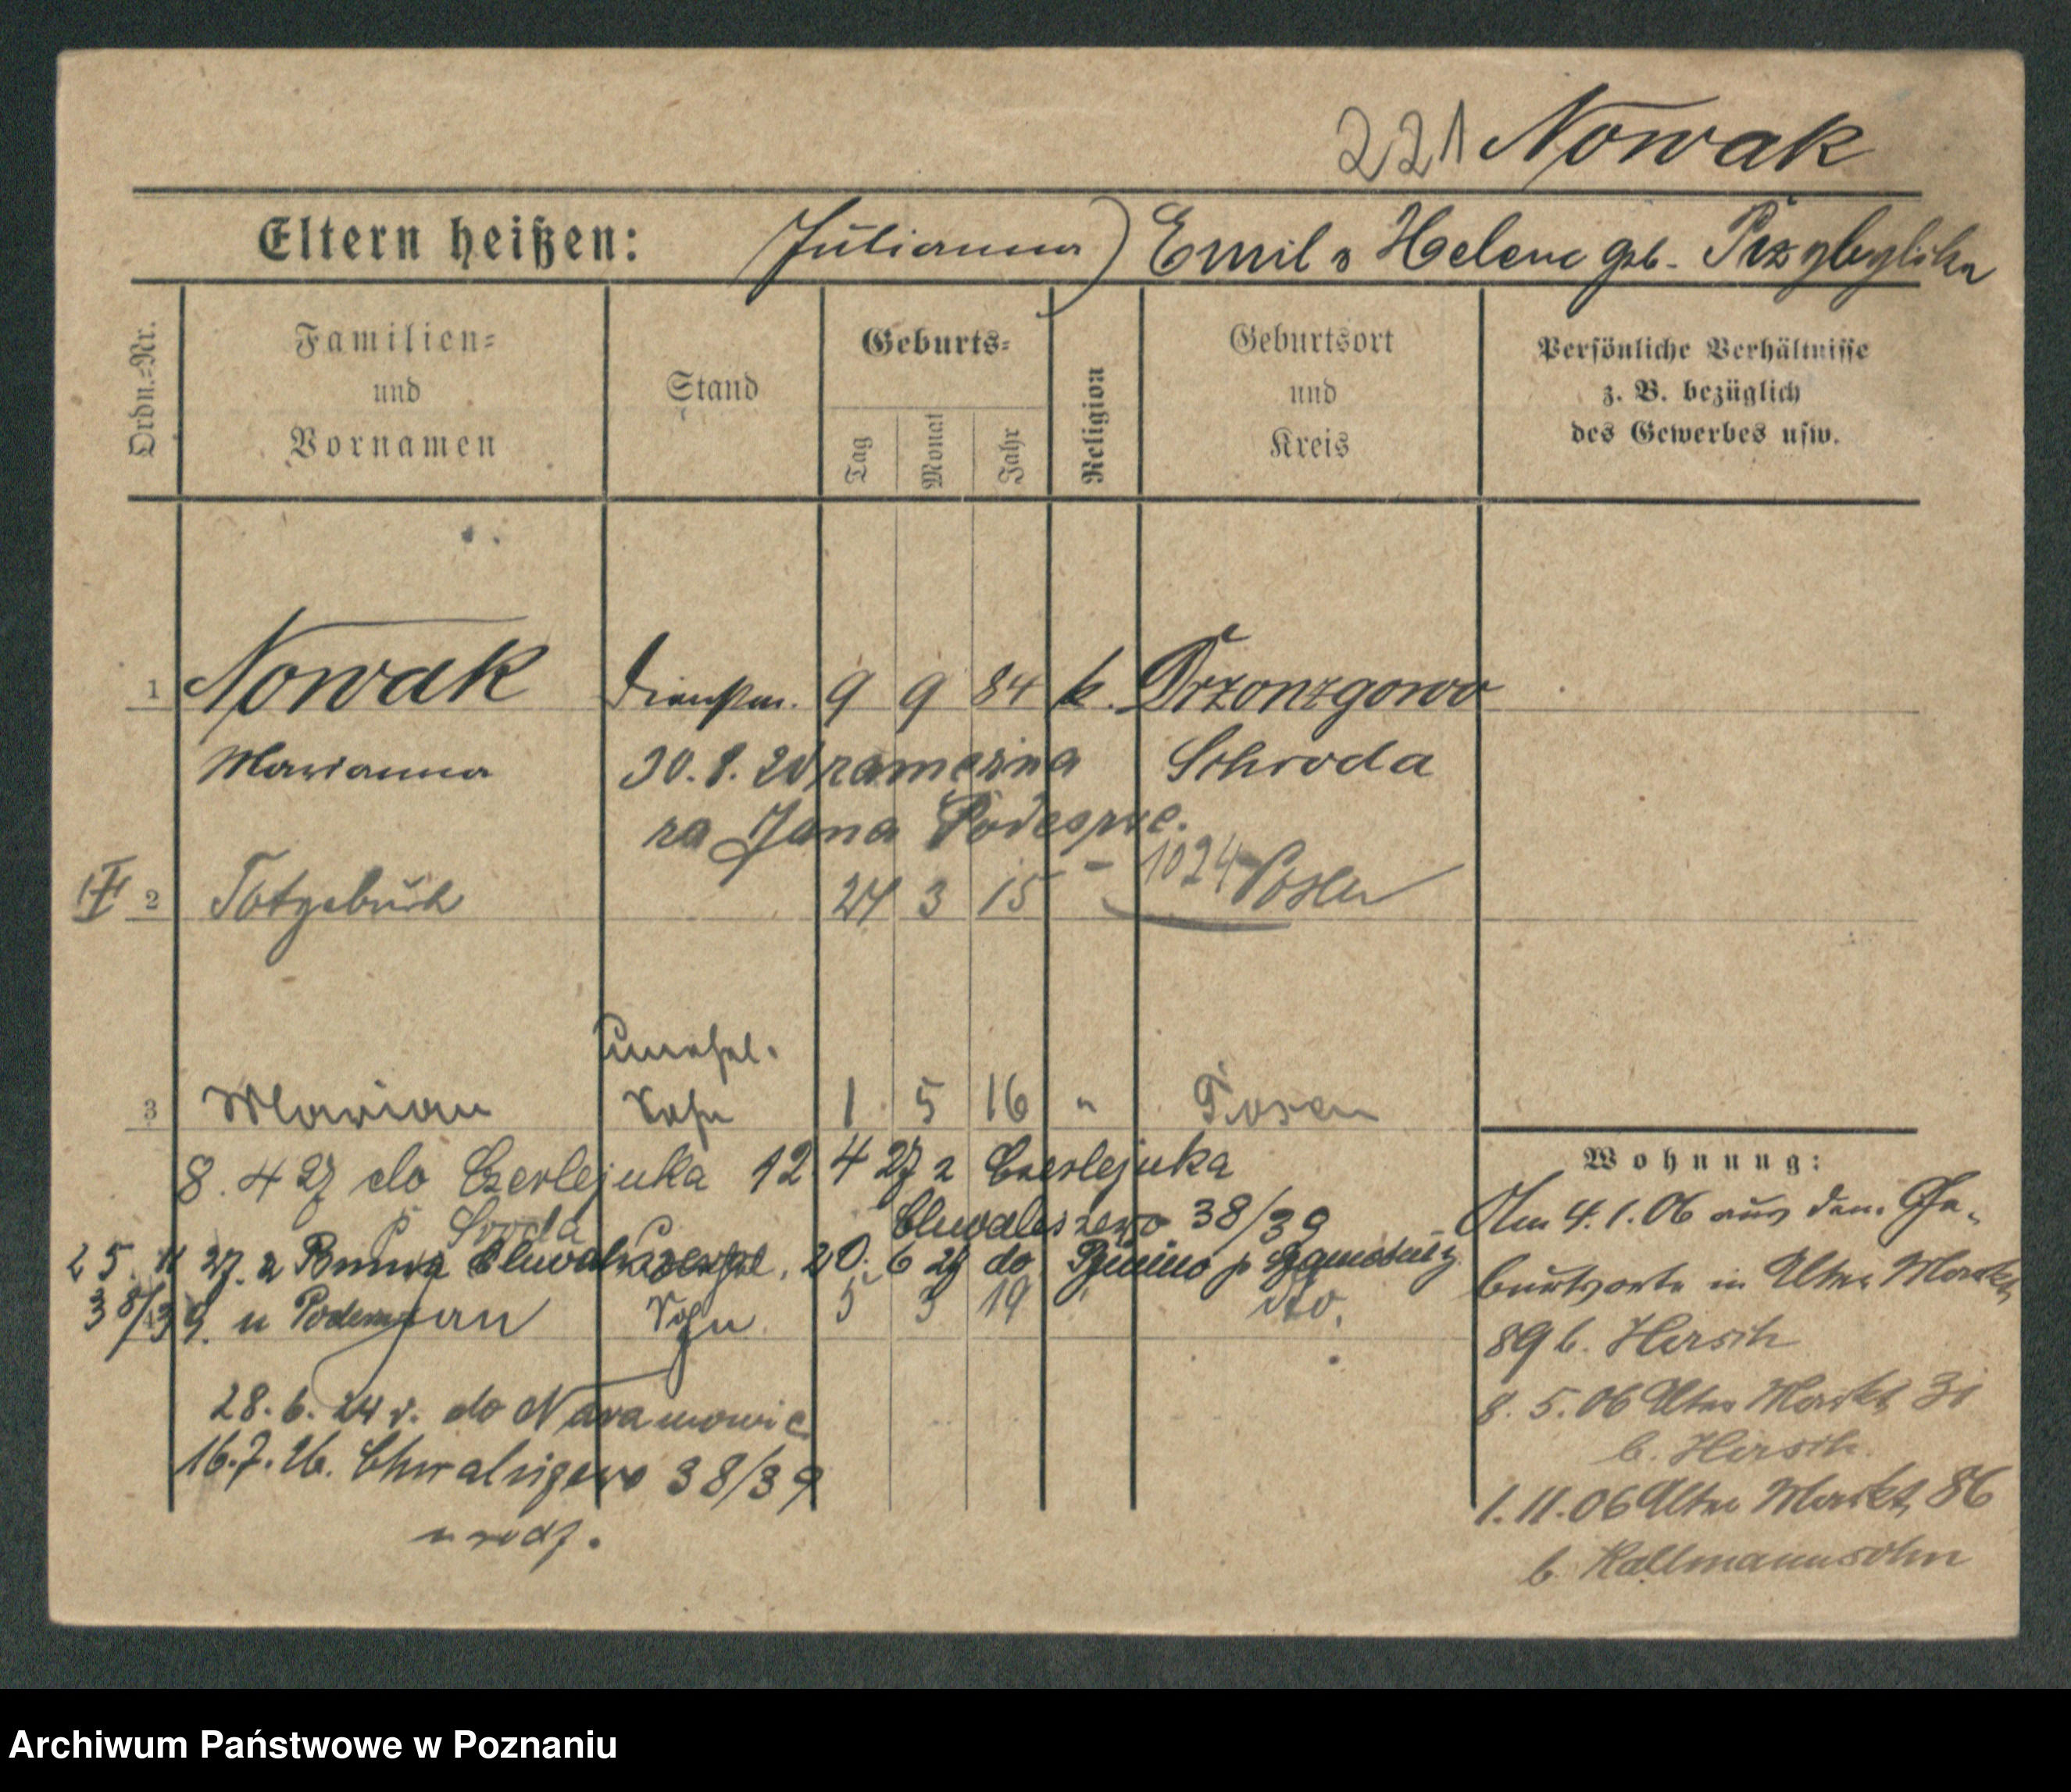 221 Nowak
Eltern heißen: Julianna) Emil u Helene geb.
Ordn.-Nr.
Familien- und Vornamen
Stand
Geburts-
Tag
Monat
Jahr
Religion
Geburtsort und Kreis
Persönliche Verhältnisse z. B. bezüglich des Gewerbes usw.
1 Nowak Dienstm. 9 9 84 k. Trzonzgowo
Marianna 30.8. zamężna Schroda
za Jana
2 Totgeburt 24 3 15 - 1024 Posen
unehel.
3 Marian Sohn 1 5 16 " Posen
8. 4 27 do Czerlejnka 12. 4 27 z Czerlejnka
Środa Chwaliszewo 38/39
25. 11 27. z Chwaliszewo 20. 6 29 do
38/39. u Jan Sohn 5 3 19 dto.
28. 6. 24 r. do Naramowic
16. 7. 26. Chwaliszewo 38/39
u rodz.
Wohnung:
Am 4. 1. 06 aus dem Ge-
burtsorte in Alter Markt
89 b. Hirsch
8. 5. 06 Alter Markt 31
b. Hirsch
1. 11. 06 Alter Markt 86
b. Kallmannsohn
Archiwum Państwowe w Poznaniu